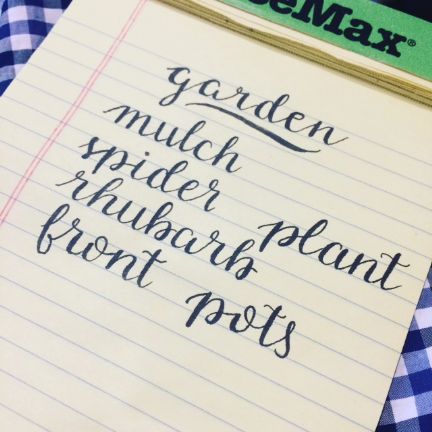 eMax®
garden
mulch
spider plant
rhubarb
front pots